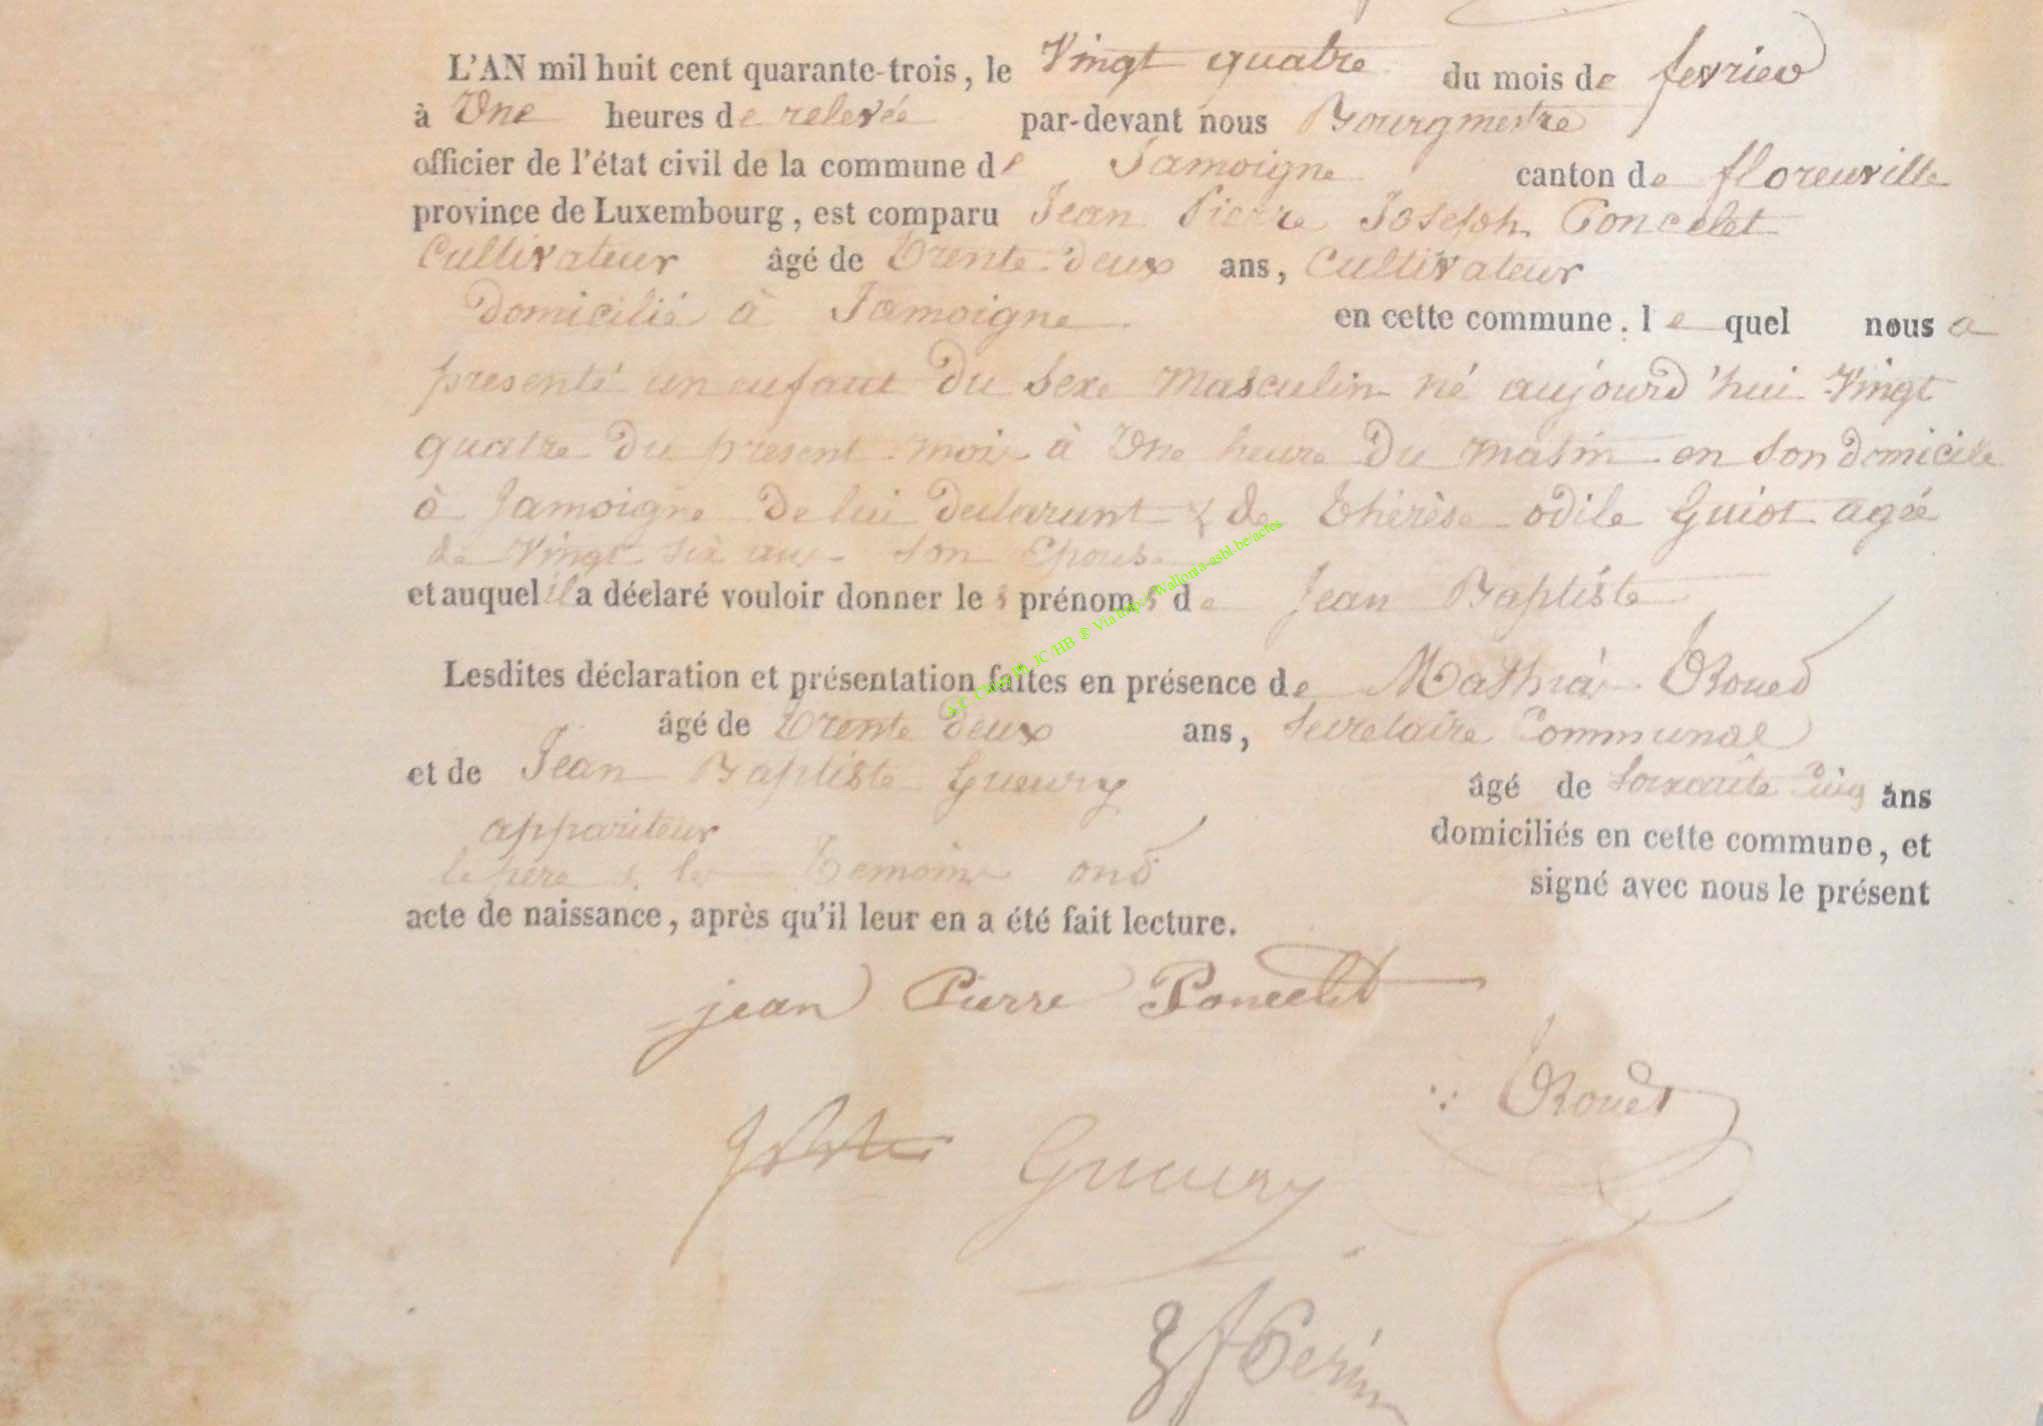 L'AN mil huit cent quarante-trois, le Vingt quatre du mois de fevrier
à Une heures de relevée par-devant nous Bourgmestre
officier de l'état civil de la commune de Jamoigne canton de florenville
province de Luxembourg, est comparu Jean Pierre Joseph Poncelet
Cultivateur âgé de trente deux ans, Cultivateur
domicilié à Jamoigne en cette commune. lequel nous a
presenté un enfant du sexe masculin né aujourd'hui Vingt
quatre du present mois à Une heure du matin en son domicile
à Jamoigne de lui declarant & de thérèse odile Guiot agée
de Vingt six ans son Epouse
et auquel il a déclaré vouloir donner les prénoms de Jean Baptiste
Lesdites déclaration et présentation faites en présence de Mathias
âgé de trente deux ans, Secretaire Communal
et de Jean Baptiste Gueury âgé de Soixante ans
appariteur domiciliés en cette commune, et
le père & les temoins ont signé avec nous le présent
acte de naissance, après qu'il leur en a été fait lecture.
jean Pierre Poncelet
Gueury